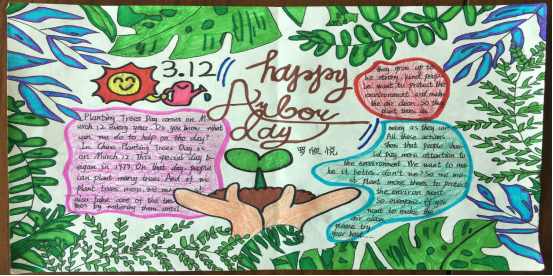 3.12
happy
Arbor
day
Planting Trees Day comes on M
arch 12 every year. Do you know what
you we do to help on the day?
In China Planting Trees Day is
on March 12. This special day b
egan in 1979. On that day, people
can plant many trees. And if we
plant trees more and
also take care of the tre
es by watering them until
they grow up to
be strong, kind peop
le want to protect the
environment and make
the air clean. So they
plant trees as
many as they can.
All these actions
show that people shou
ld pay more attention to
the environment. We want to ma
ke it better, don't we? So we mu
st plant more trees to protect
the environment.
So everyone, if you
want to make the
air clean
please try
your best......